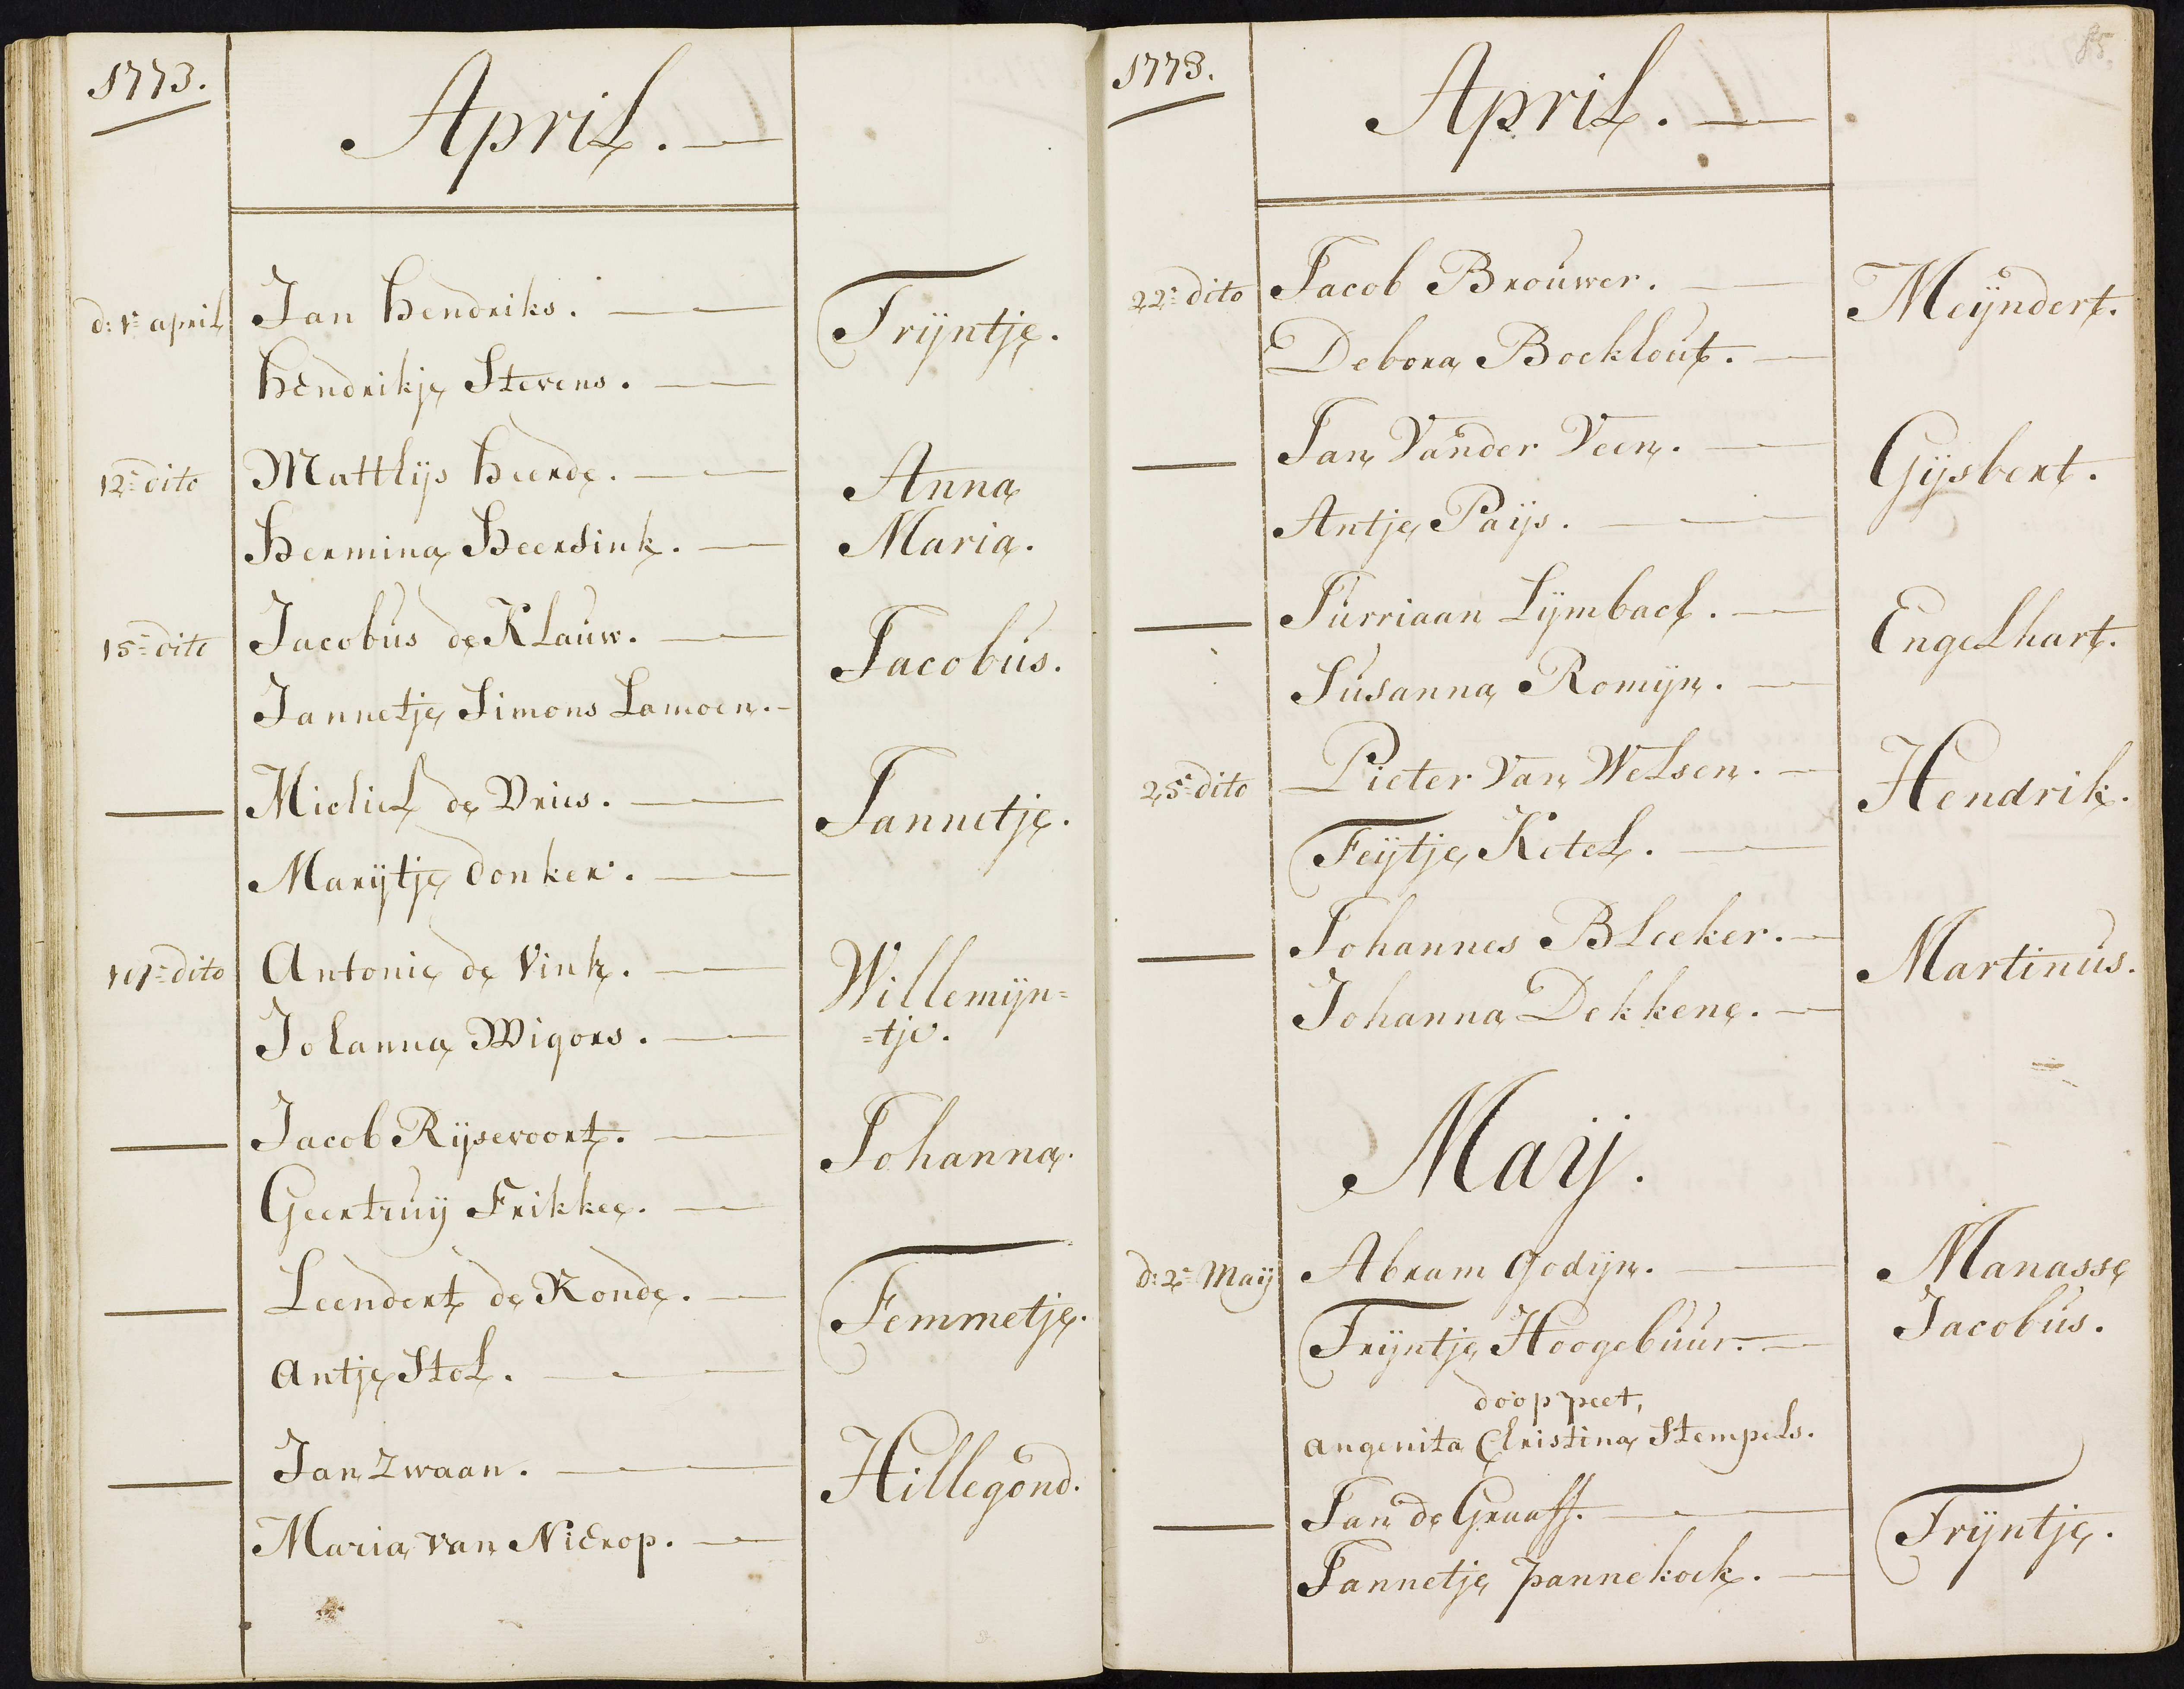 1773.
April.
d: 1e april
Jan Hendriks.
Trijntje.
Hendrikje Stevens.
12e dito
Matthijs Heerde.
Anna
Hermina Heersink.
Maria.
15e dito
Jacobus de Klauw.
Jacobus.
Jannetje Simons Lamoen.
Michiel de Vries.
Jannetje.
Marijtje donker.
dito
Antonie de Vink.
Willemijn=
Johanna Wigors.
=tje.
Jacob Rijsevoort.
Johanna.
Geertruij Frikkee.
Leendert de Ronde.
Femmetje.
Antje Stol.
Jan Zwaan.
Hillegond.
Maria van Nierop.
1773.
85.
April.
22e dito
Jacob Brouwer.
Meijndert.
Debora Bockhout.
Jan Vander Veen.
Gijsbert.
Antje Paijs.
Jurriaan Lijmbach.
Engelhart.
Susanna Romijn.
25e dito
Pieter Van Welsen.
Hendrik.
Feijtje Ketel.
Johannes Bleeker.
Martinus.
Johanna Dekkene.
Maij.
d: 2e Maij
Abram Godijn.
Manasse
Trijntje Hoogebuur.
Jacobus.
doop peet,
angenita Christina Stempels.
Jan de Graaff.
Trijntje.
Jannetje pannekoek.